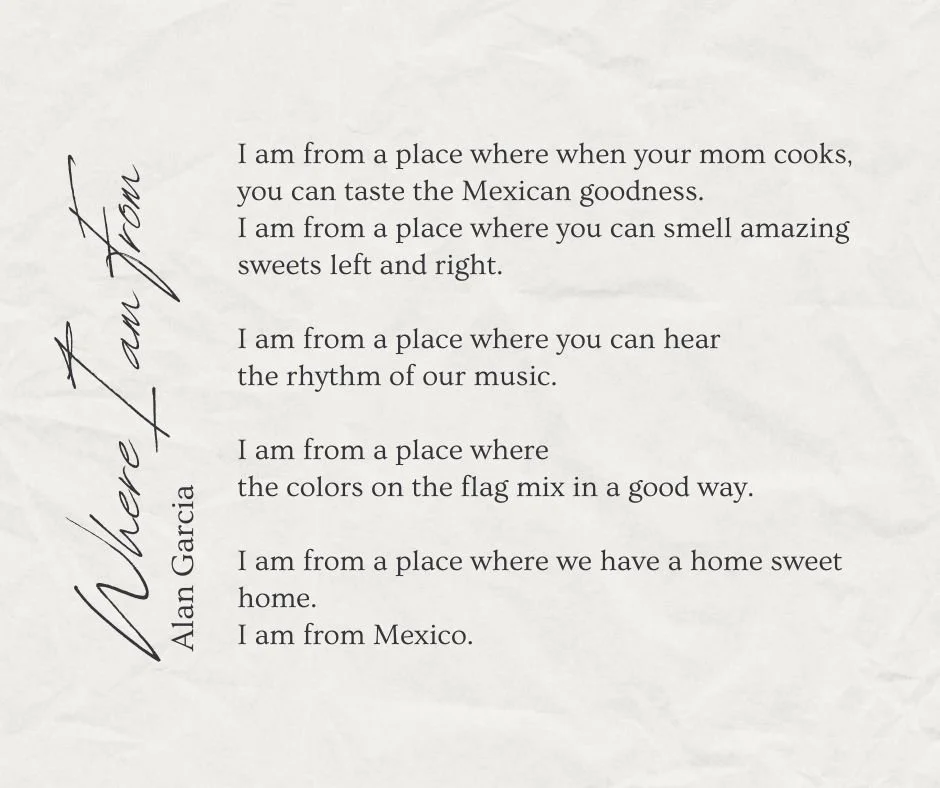 Where I am from
Alan Garcia
I am from a place where when your mom cooks,
you can taste the Mexican goodness.
I am from a place where you can smell amazing
sweets left and right.
I am from a place where you can hear
the rhythm of our music.
I am from a place where
the colors on the flag mix in a good way.
I am from a place where we have a home sweet
home.
I am from Mexico.